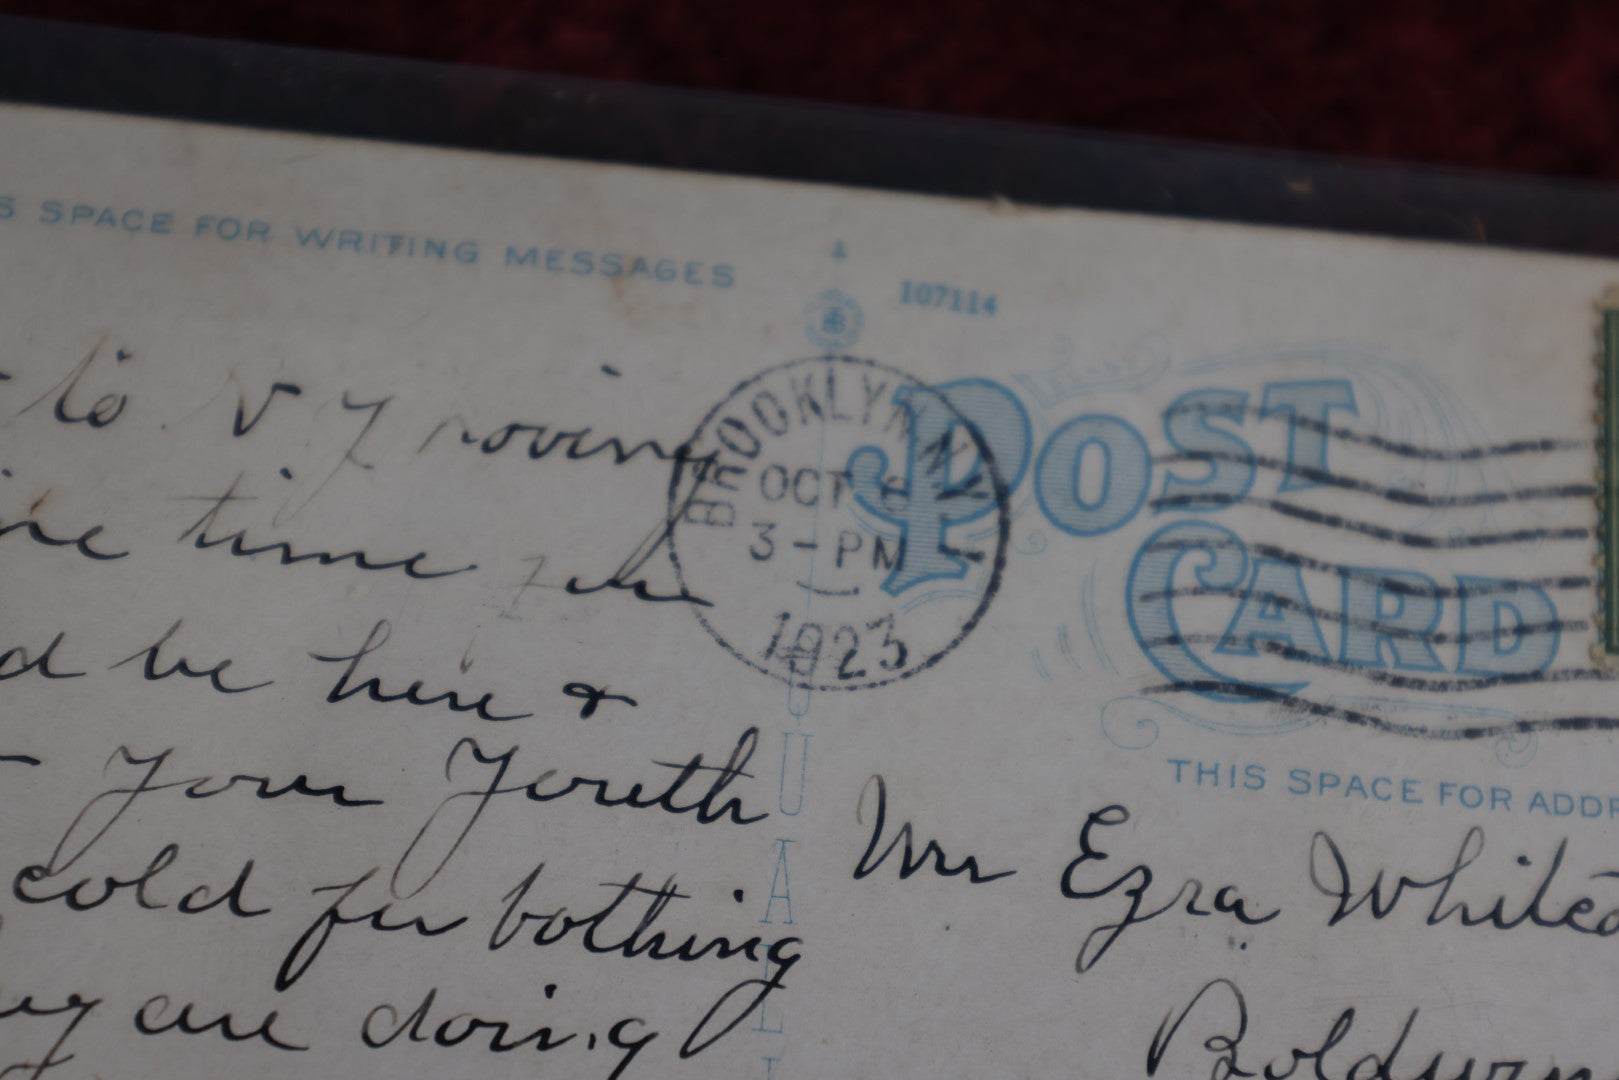 S SPACE FOR WRITING MESSAGES
107114
BROOKLYN, N.Y.
OCT 6
3-PM
1923
POST
CARD
THIS SPACE FOR ADDR
to N Y
time
d be here &
your
cold for bothing
are doing
Mr Ezra White
Boldwin